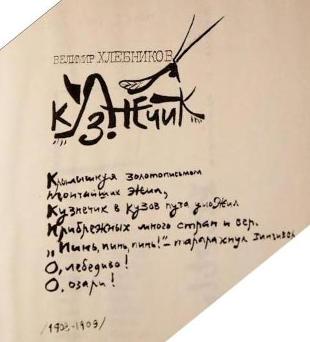 ВЕЛИМИР ХЛЕБНИКОВ
КУЗНЕЧИК
Крылышкуя золотописьмом
Тончайших жил,
Кузнечик в кузов пуза уложил
Прибрежных много трав и вер.
„Пинь, пинь, пинь!" – тарарахнул Зинзивер
О, лебедиво!
О, озари!
/1908-1909/